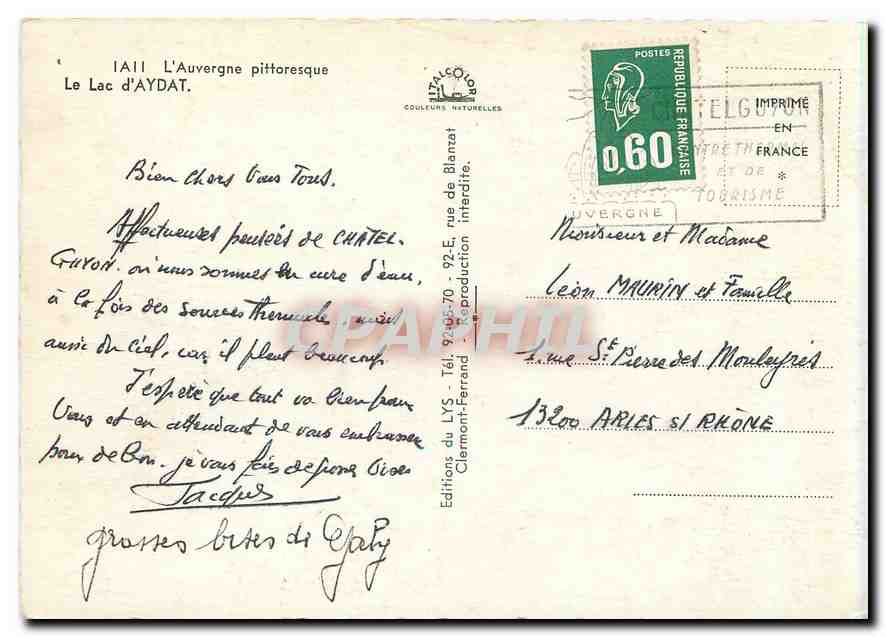 1A11 L'Auvergne pittoresque
Le Lac d'AYDAT.
ITALCOLOR
COULEURS NATURELLES
POSTES
REPUBLIQUE FRANÇAISE
0,60
IMPRIMÉ
EN
FRANCE
*
CHATELGUYON
CENTRE THERMAL
ET DE
TOURISME
AUVERGNE
Bien chers Vous Tous.
Affectueuses pensées de CHATEL-
GUYON. où nous sommes en cure d'eau,
à la fois des sources thermales, mais
aussi du ciel, car il pleut beaucoup
J'espère que tout va bien pour
Vous et en attendant de vous embrasser
pour de bon. je vous fais de grosses bises
Jacques
grosses bises de
Editions du LYS - Tél. 92-05-70 - 92-E, rue de Blanzat
Clermont-Ferrand - Reproduction interdite.
Monsieur et Madame
Léon MAURIN et Famille
1. rue St Pierre des Mouleyrès
13200 ARLES s/ RHÔNE
CPAPHIL